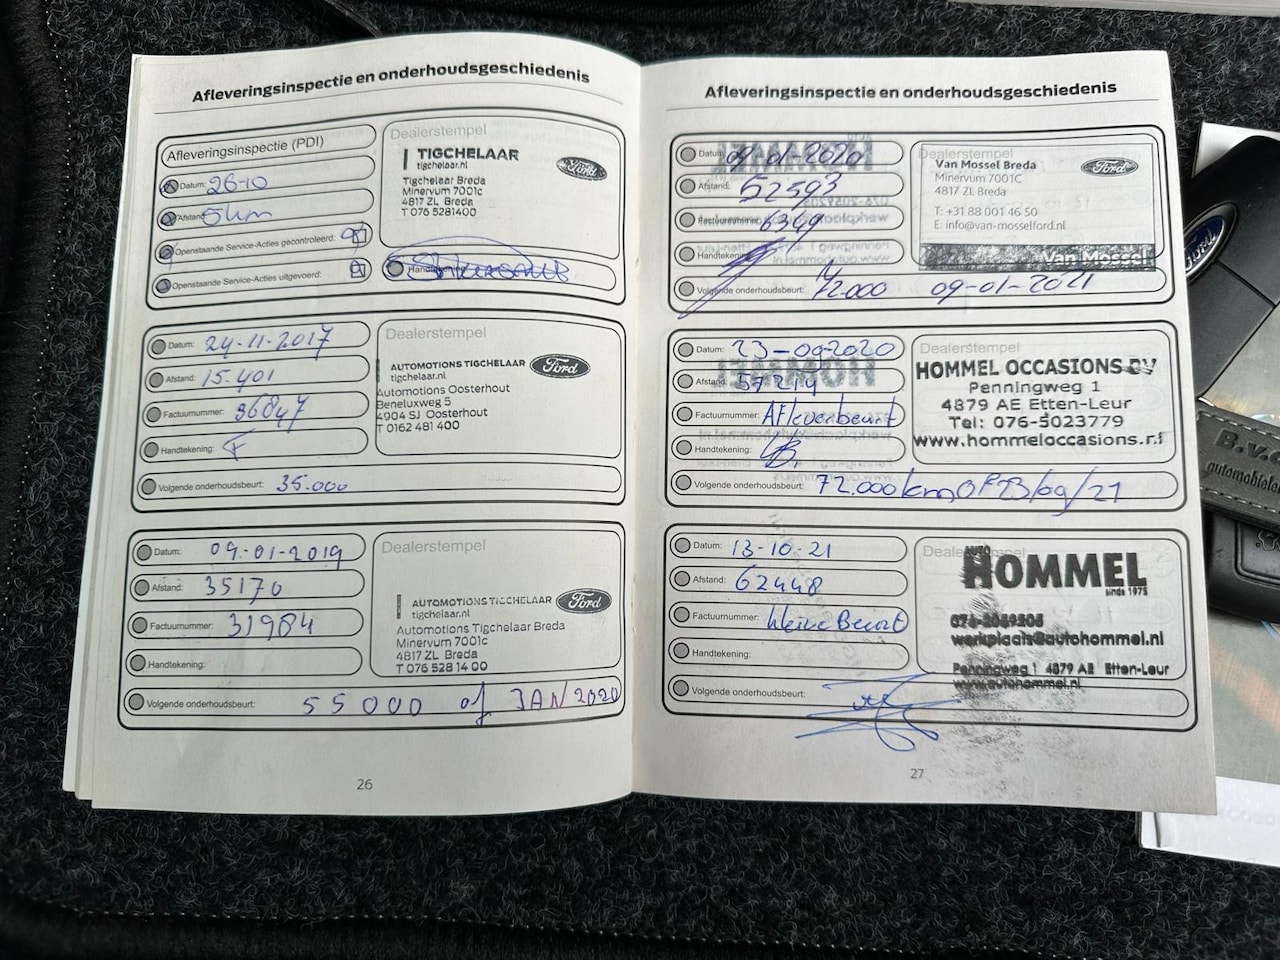 Afleveringsinspectie en onderhoudsgeschiedenis
Afleveringsinspectie (PDI)
Datum: 26-10
Afstand: 5 km
Openstaande Service-Acties gecontroleerd:
Openstaande Service-Acties uitgevoerd:
Dealerstempel
TIGCHELAAR
tigchelaar.nl
Tigchelaar Breda
Minervum 7001c
4817 ZL Breda
T 076 5281400
Ford
Handtekening:
Datum: 24-11-2017
Afstand: 15.401
Factuurnummer: 36847
Handtekening:
Volgende onderhoudsbeurt: 35.000
Dealerstempel
AUTOMOTIONS TIGCHELAAR
tigchelaar.nl
Automotions Oosterhout
Beneluxweg 5
4904 SJ Oosterhout
T 0162 481 400
Ford
Datum: 09-01-2019
Afstand: 35170
Factuurnummer: 31984
Handtekening:
Volgende onderhoudsbeurt: 55000 of JAN 2020
Dealerstempel
AUTOMOTIONS TIGCHELAAR
tigchelaar.nl
Automotions Tigchelaar Breda
Minervum 7001c
4817 ZL Breda
T 076 528 14 00
Ford
26
Afleveringsinspectie en onderhoudsgeschiedenis
Datum: 09-01-2020
Afstand: 52593
Factuurnummer: 6349
Handtekening:
Volgende onderhoudsbeurt: 72.000 09-01-2021
Dealerstempel
Van Mossel Breda
Minervum 7001C
4817 ZL Breda
T: +31 88 001 46 50
E: info@van-mosselford.nl
Ford
Van Mossel
Datum: 23-09-2020
Afstand: 57214
Factuurnummer: Afleverbeurt
Handtekening:
Volgende onderhoudsbeurt: 72.000 km OF 23/09/21
Dealerstempel
HOMMEL OCCASIONS BV
Penningweg 1
4879 AE Etten-Leur
Tel: 076-5023779
www.hommeloccasions.nl
Datum: 13-10-21
Afstand: 62448
Factuurnummer: kleine Beurt
Handtekening:
Volgende onderhoudsbeurt:
Dealerstempel
AUTO
HOMMEL
sinds 1975
076-2059205
werkplaats@autohommel.nl
Penningweg 1 4879 AE Etten-Leur
www.autohommel.nl
27
Ford
B.v.d
automobielen